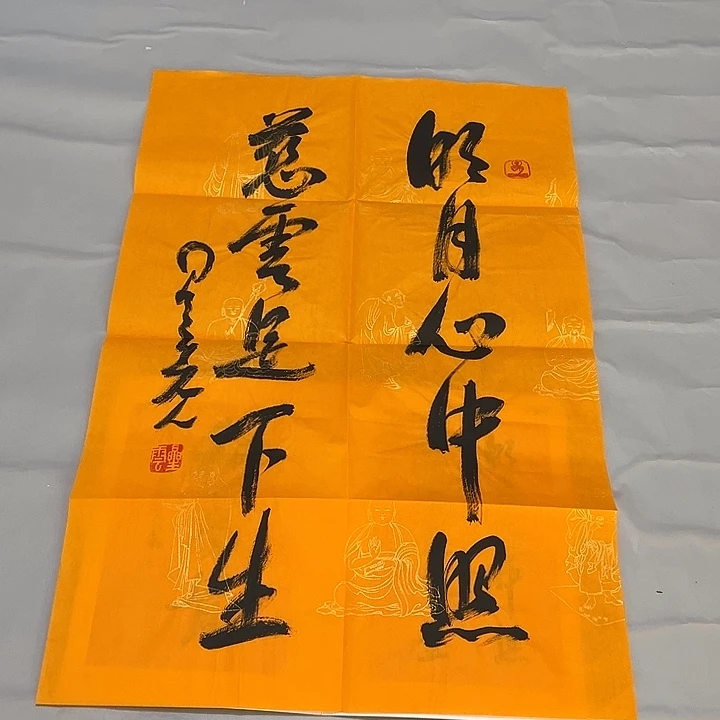 明月心中照
慈雲足下生
星雲